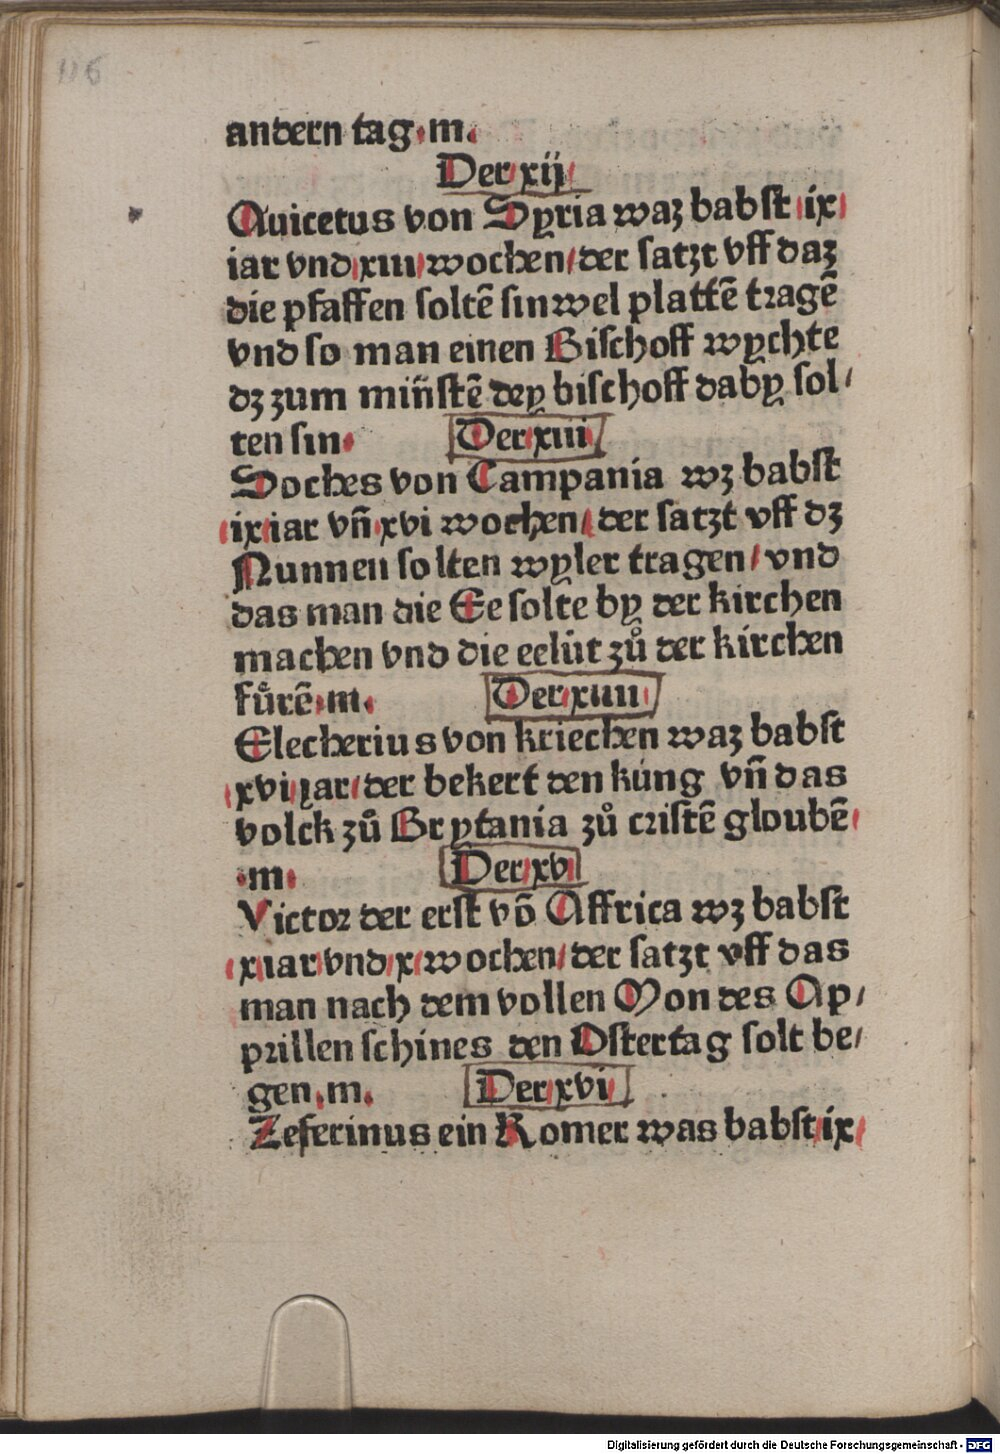 116
andern tag·m·
Der xij
Quicetus von Syria waʒ babst ix
iar vnd xiii wochen/der satzt vff daʒ
die pfaffen soltē sinwel plattē tragē
vnd so man einen Bischoff wychte
dʒ zum miñstē dry bischoff daby sol/
ten sin· Der xiii
Soches von Campania wʒ babst
ix iar vñ xvi wochen/der satzt vff dʒ
Nunnen solten wyler tragen/vnd
das man die Ee solte by der kirchen
machen vnd die eelüt zů der kirchen
fůrē·m· Der xiiii
Elecherius von kriechen waʒ babst
xvi iar/der bekert den küng vñ das
volck zů Brytania zů cristē gloubē
·m· Der xv
Victor der erst vō Affrica wʒ babst
x iar vnd x wochen/der satzt vff das
man nach dem vollen Mon des Ap/
prillen schines den Ostertag solt be/
gen·m· Der xvi
Zeferinus ein Romer was babst ix
Digitalisierung gefördert durch die Deutsche Forschungsgemeinschaft - DFG